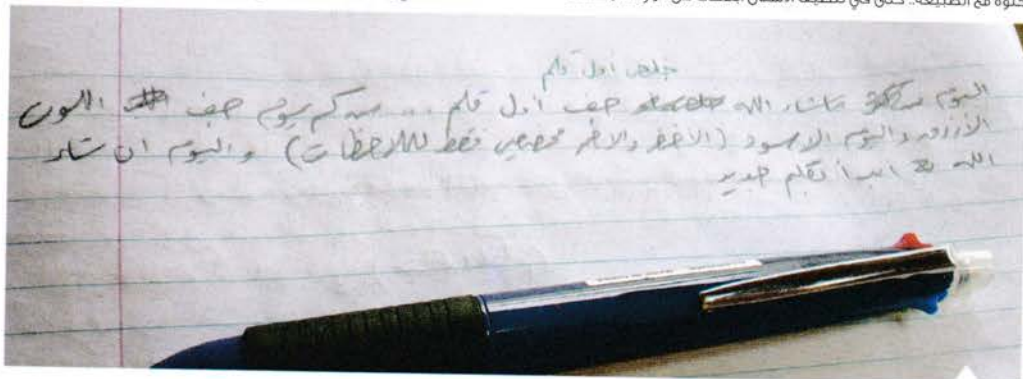 خلص أول قلم
اليوم ما شاء الله جف أول قلم ... من كم يوم جف اللون
الأزرق واليوم الاسود (الاخضر والاحمر مخصص فقط للملاحظات) واليوم ان شاء
الله ابدأ بقلم جديد